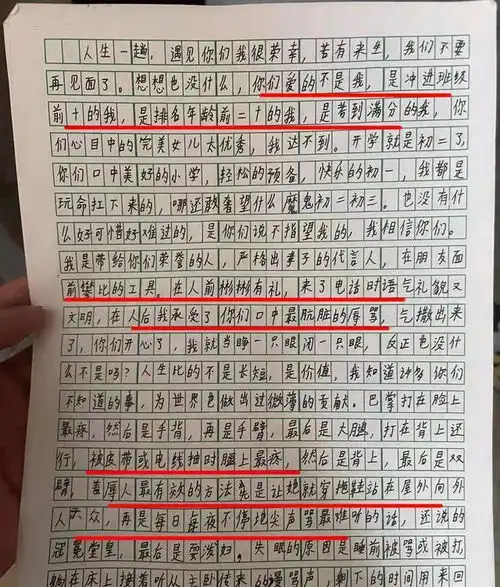 人生一趟，遇见你们我很荣幸，若有来生，我们不要
再见面了。想想也没什么，你们爱的不是我，是冲进班级
前十的我，是排名年龄前二十的我，是考到满分的我，你
们心目中的完美女儿太优秀，我达不到。开学就是初二了，
你们口中美好的小学，轻松的预备，快乐的初一，我都是
玩命扛下来的，哪还敢奢望什么魔鬼初二初三。也没有什
么好可惜好难过的，是你们说不指望我的，我相信你们。
我是带给你们荣誉的人，严格出妻子的代言人，在朋友面
前攀比的工具。在人前彬彬有礼，来了电话时语气礼貌又
文明，在人后我承受了你们口中最肮脏的辱骂，气撒出来
了，你们开心了，我就当睁一只眼闭一只眼，反正也没什
么不是吗？人生比的不是长短，是价值，我知道许多你们
不知道的事，为世界也做出过微薄的贡献。巴掌打在脸上
最疼，然后是手背，再是手臂，最后是大腿，打在背上还
行，被皮带或电线抽时腿上最疼，然后是背上，最后是双
臂，羞辱人最有效的方法先是让她就穿拖鞋站在屋外向外
人示众，再是每日每夜不停地尖声骂最难听的话，还说的
冠冕堂皇，最后是耍泼妇。失眠的原因是睡前被骂或被打，
躺在床上接着听从主卧传来的谩骂声，剩下的时间用来回